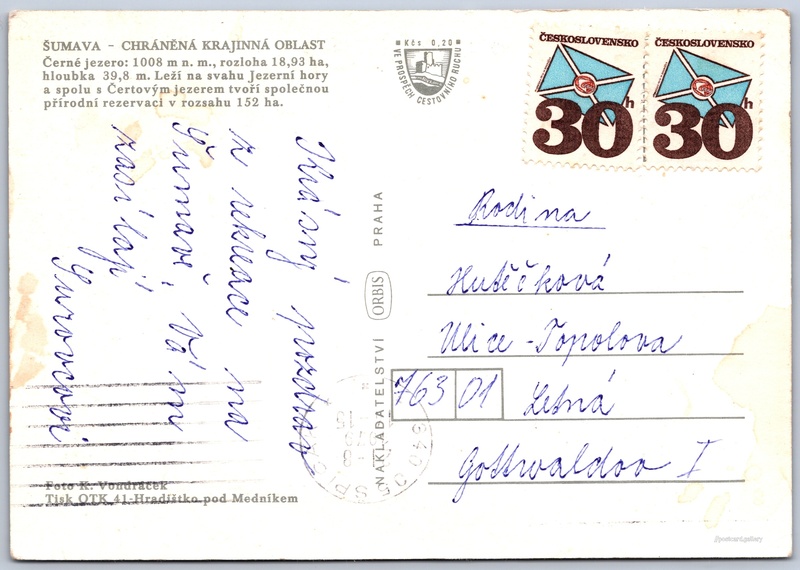 ŠUMAVA – CHRÁNĚNÁ KRAJINNÁ OBLAST
Černé jezero: 1008 m n. m., rozloha 18,93 ha,
hloubka 39,8 m. Leží na svahu Jezerní hory
a spolu s Čertovým jezerem tvoří společnou
přírodní rezervaci v rozsahu 152 ha.
Kčs 0,20
VE PROSPĚCH CESTOVNÍHO RUCHU
ČESKOSLOVENSKO
30h
ČESKOSLOVENSKO
30h
Krásný pozdrav
z rekreace na
Šumavě, Vám
zasílají
Surovcovi
NAKLADATELSTVÍ ORBIS PRAHA
Rodina
Hutěčková
Ulice - Topolova
763 01 Letná
Gottwaldov I
Foto K. Vondráček
Tisk OTK 41-Hradištko pod Medníkem